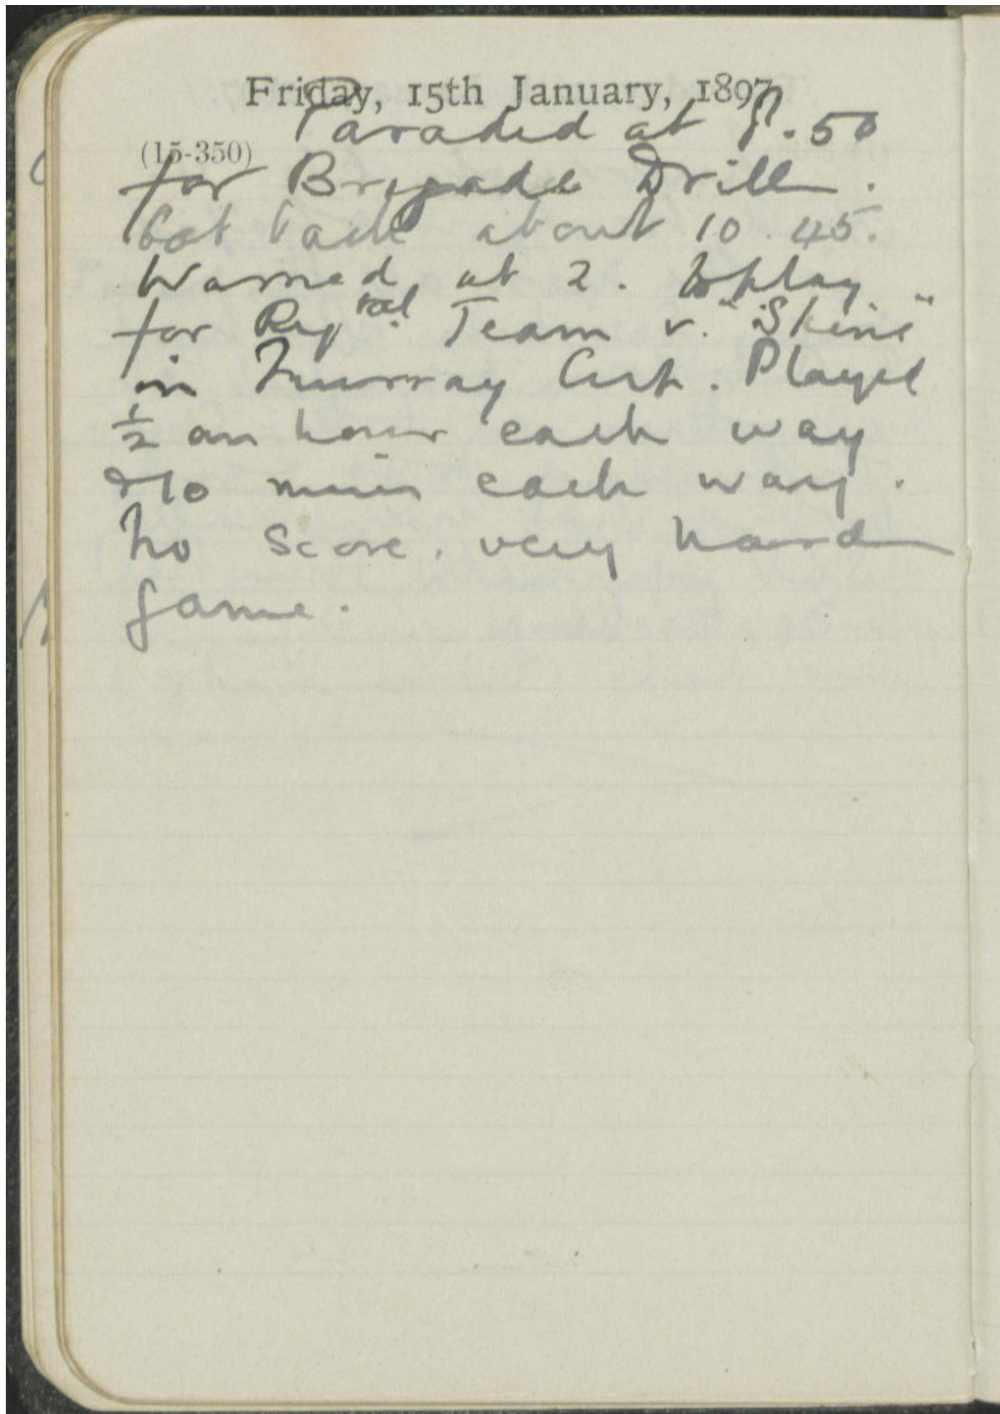 Friday, 15th January, 1897
Paraded at 8.50
(15-350)
for Brigade Drill.
Got back about 10.45.
Warned at 2. to play
for Reg tal. Team v. "Skins"
in Murray Cup. Played
½ an hour each way
& 10 mins each way.
No score. very hard
game.